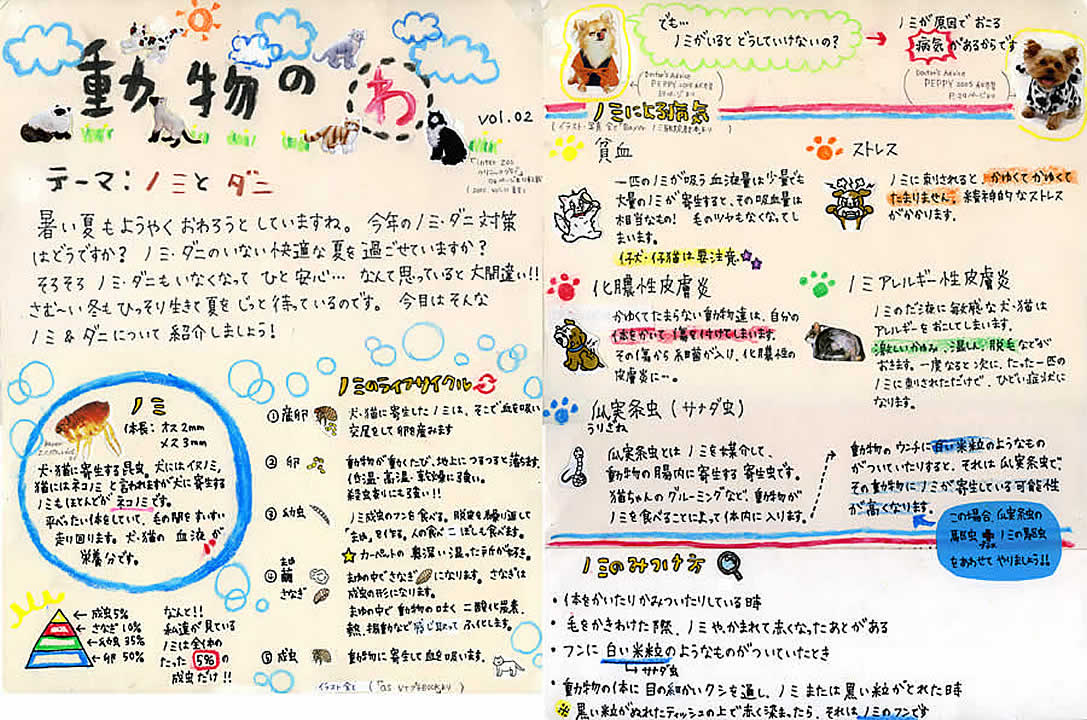 動物の
わ
vol.02
テーマ：ノミとダニ
暑い夏もようやくおわろうとしていますね。今年のノミ・ダニ対策
はどうですか？ ノミ・ダニのいない快適な夏を過ごせていますか？
そろそろノミ・ダニもいなくなってひと安心… なんて思っていると大間違い!!
さむ〜い冬もひっそり生きて夏をじっと待っているのです。今月はそんな
ノミ&ダニについて紹介しましょう！
ノミ
体長：オス2mm
メス3mm
犬・猫に寄生する昆虫。犬にはイヌノミ、
猫にはネコノミと言われますが犬に寄生する
ノミもほとんどがネコノミです。
平べったい体をしていて、毛の間をすいすい
走り回ります。犬・猫の血液が
栄養分です。
成虫5%
さなぎ10%
幼虫35%
卵50%
なんと!!
私達が見ている
ノミは全体の
たった5%の
成虫だけ!!
ノミのライフサイクル
①産卵
犬・猫に寄生したノミは、そこで血を吸い
交尾をして卵を産みます
②卵
動物が動くたび、地上につるつると落ちます。
低温・高温・乾燥に強い。
殺虫剤にも強い!!
③幼虫
ノミ成虫のフンを食べる。脱皮を繰り返して
「まゆ」を作る。人の食べこぼしも食べます。
カーペットの奥深い湿った所が好き。
④まゆ
繭
さなぎ
まゆの中でさなぎになります。さなぎは
成虫の形になります。
まゆの中で動物の吐く二酸化炭素、
熱、振動などを感じ取ってふ化します。
⑤成虫
動物に寄生して血を吸います。
でも…
ノミがいるとどうしていけないの？
ノミが原因でおこる
病気があるからです
Doctor's Advice
PEPPY
Doctor's Advice
PEPPY 2005
ノミによる病気
貧血
一匹のノミが吸う血液量は少量でも
大量のノミが寄生すると、その吸血量は
相当なもの！ 毛のツヤもなくなってし
まいます。
仔犬・仔猫は要注意
ストレス
ノミに刺されると、かゆくてかゆくて
たまりません。精神的なストレス
がかかります。
化膿性皮膚炎
かゆくてたまらない動物達は、自分の
体をかいて傷を付けてしまいます。
その傷から細菌が入り、化膿性の
皮膚炎に…。
ノミアレルギー性皮膚炎
ノミのだ液に敏感な犬・猫は
アレルギーをおこしてしまいます。
激しいかゆみ、湿しん、脱毛などが
おきます。一度なると次に、たった一匹の
ノミに刺されただけで、ひどい症状に
なります。
瓜実条虫（サナダ虫）
うりざね
瓜実条虫とはノミを媒介して、
動物の腸内に寄生する寄生虫です。
猫ちゃんのグルーミングなど、動物が
ノミを食べることによって体内に入ります。
動物のウンチに白い米粒のようなもの
がついていたりすると、それは瓜実条虫で、
その動物にノミが寄生している可能性
が高くなります。
この場合、瓜実条虫の
駆虫＋ノミの駆虫
をあわせてやりましょう!!
ノミのみつけ方
・体をかいたりかみついたりしている時
・毛をかきわけた際、ノミや、かまれて赤くなったあとがある
・フンに白い米粒のようなものがついていたとき
サナダ虫
・動物の体に目の細かいクシを通し、ノミまたは黒い粒がとれた時
※黒い粒がぬれたティッシュの上で赤く染まったら、それはノミのフンです